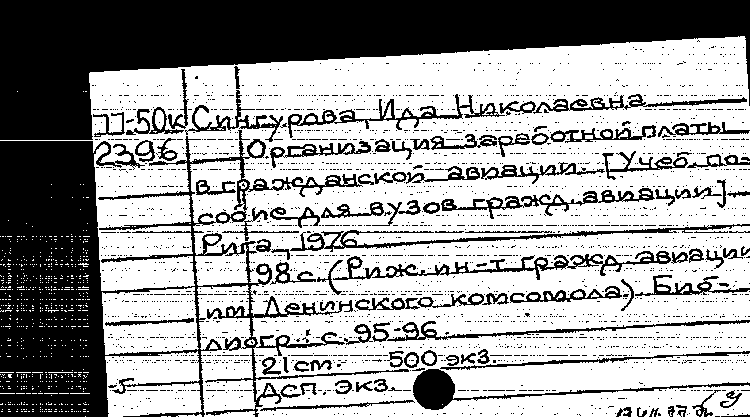 77-50к Сингурова, Ида Николаевна
2396 Организация заработной платы
в гражданской авиации. [Учеб. по-
собие для вузов гражд. авиации].
Рига, 1976.
98 с. (Риж. ин-т гражд. авиации
им. Ленинского комсомола). Биб-
лиогр.: с. 95-96.
21 см. 500 экз.
-5 ДСП. экз.